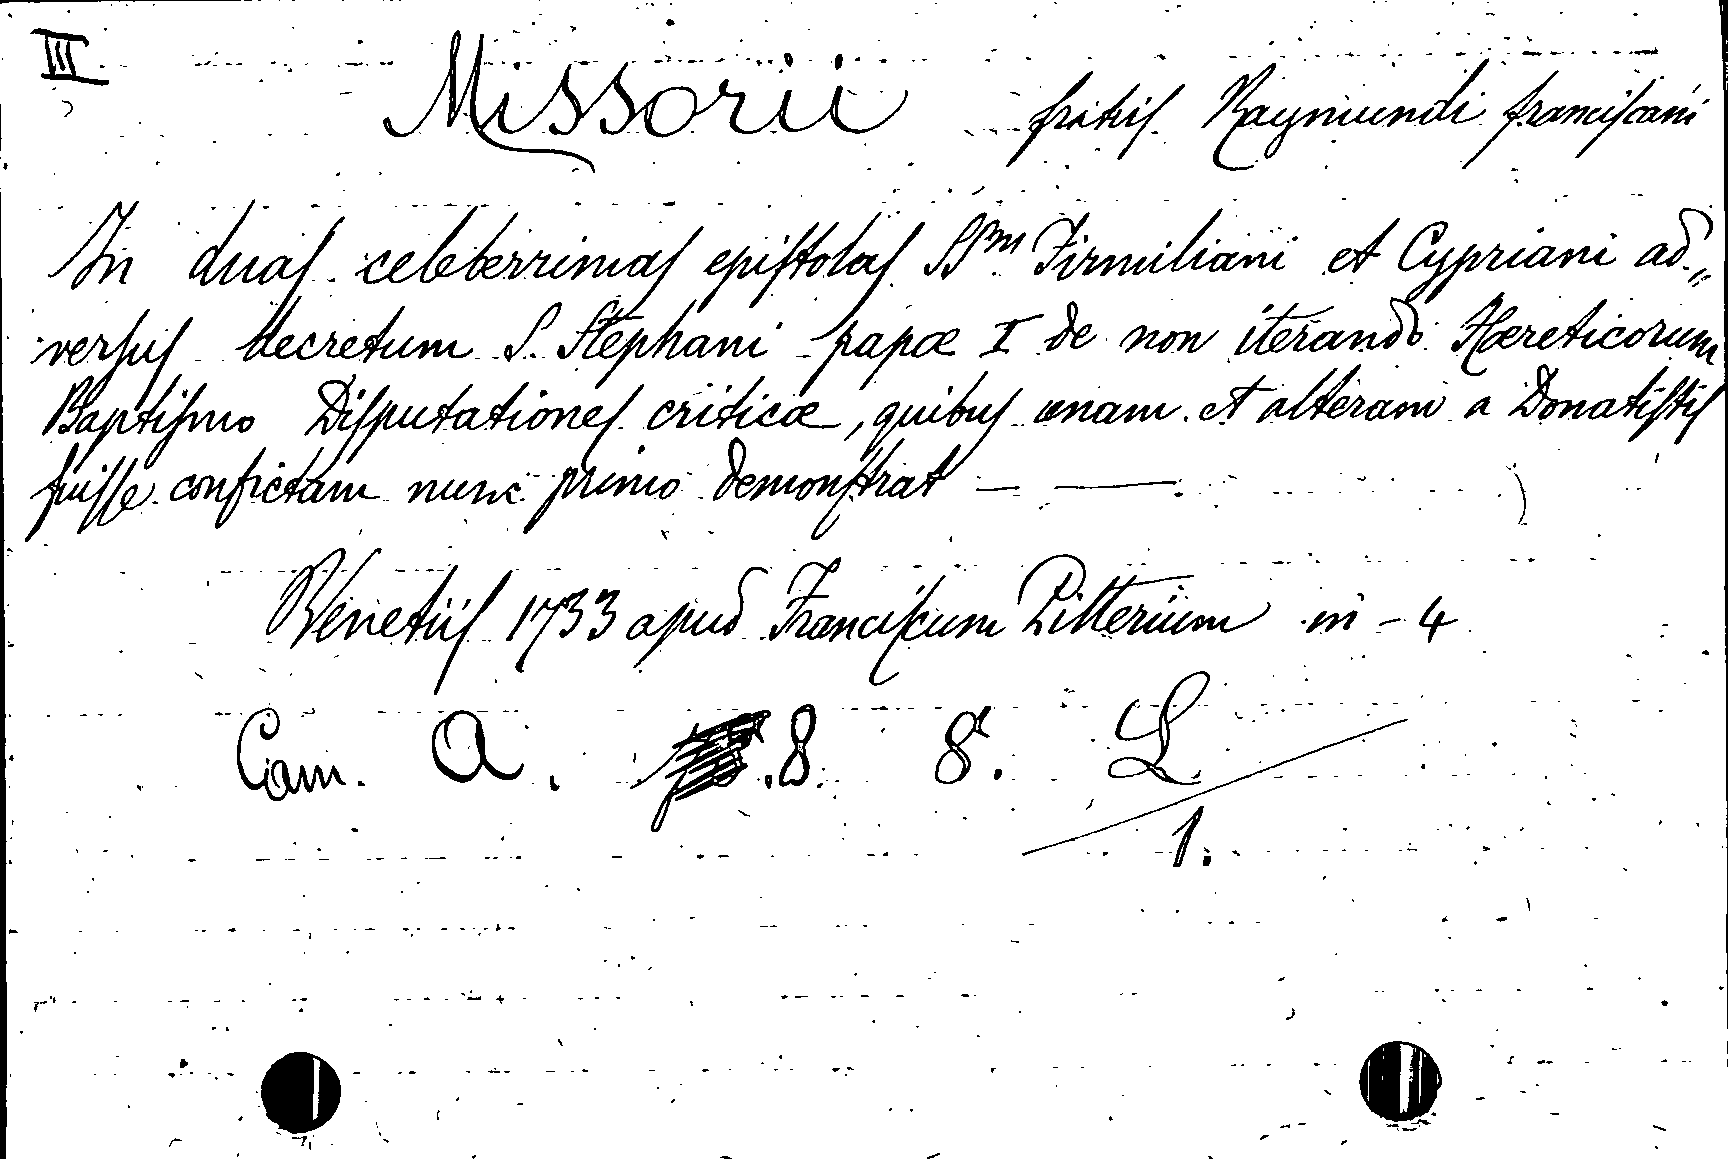 III
Missorii fratris Raymundi franciscani
In duas celeberrimas epistolas SSm Firmiliani et Cypriani ad„
versus decretum S. Stephani papæ I de non iterando Hæreticorum
Baptismo Disputationes criticæ, quibus unam et alteram a Donatistis
fuisse confictam nunc primo demonstrat — —
Venetiis 1733 apud Franciscum Pitterium in-4
Cam. A. 8. 8. L
1.